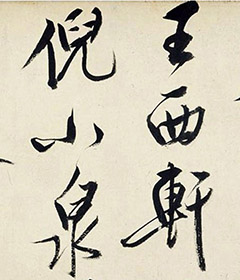 王西軒
倪小泉